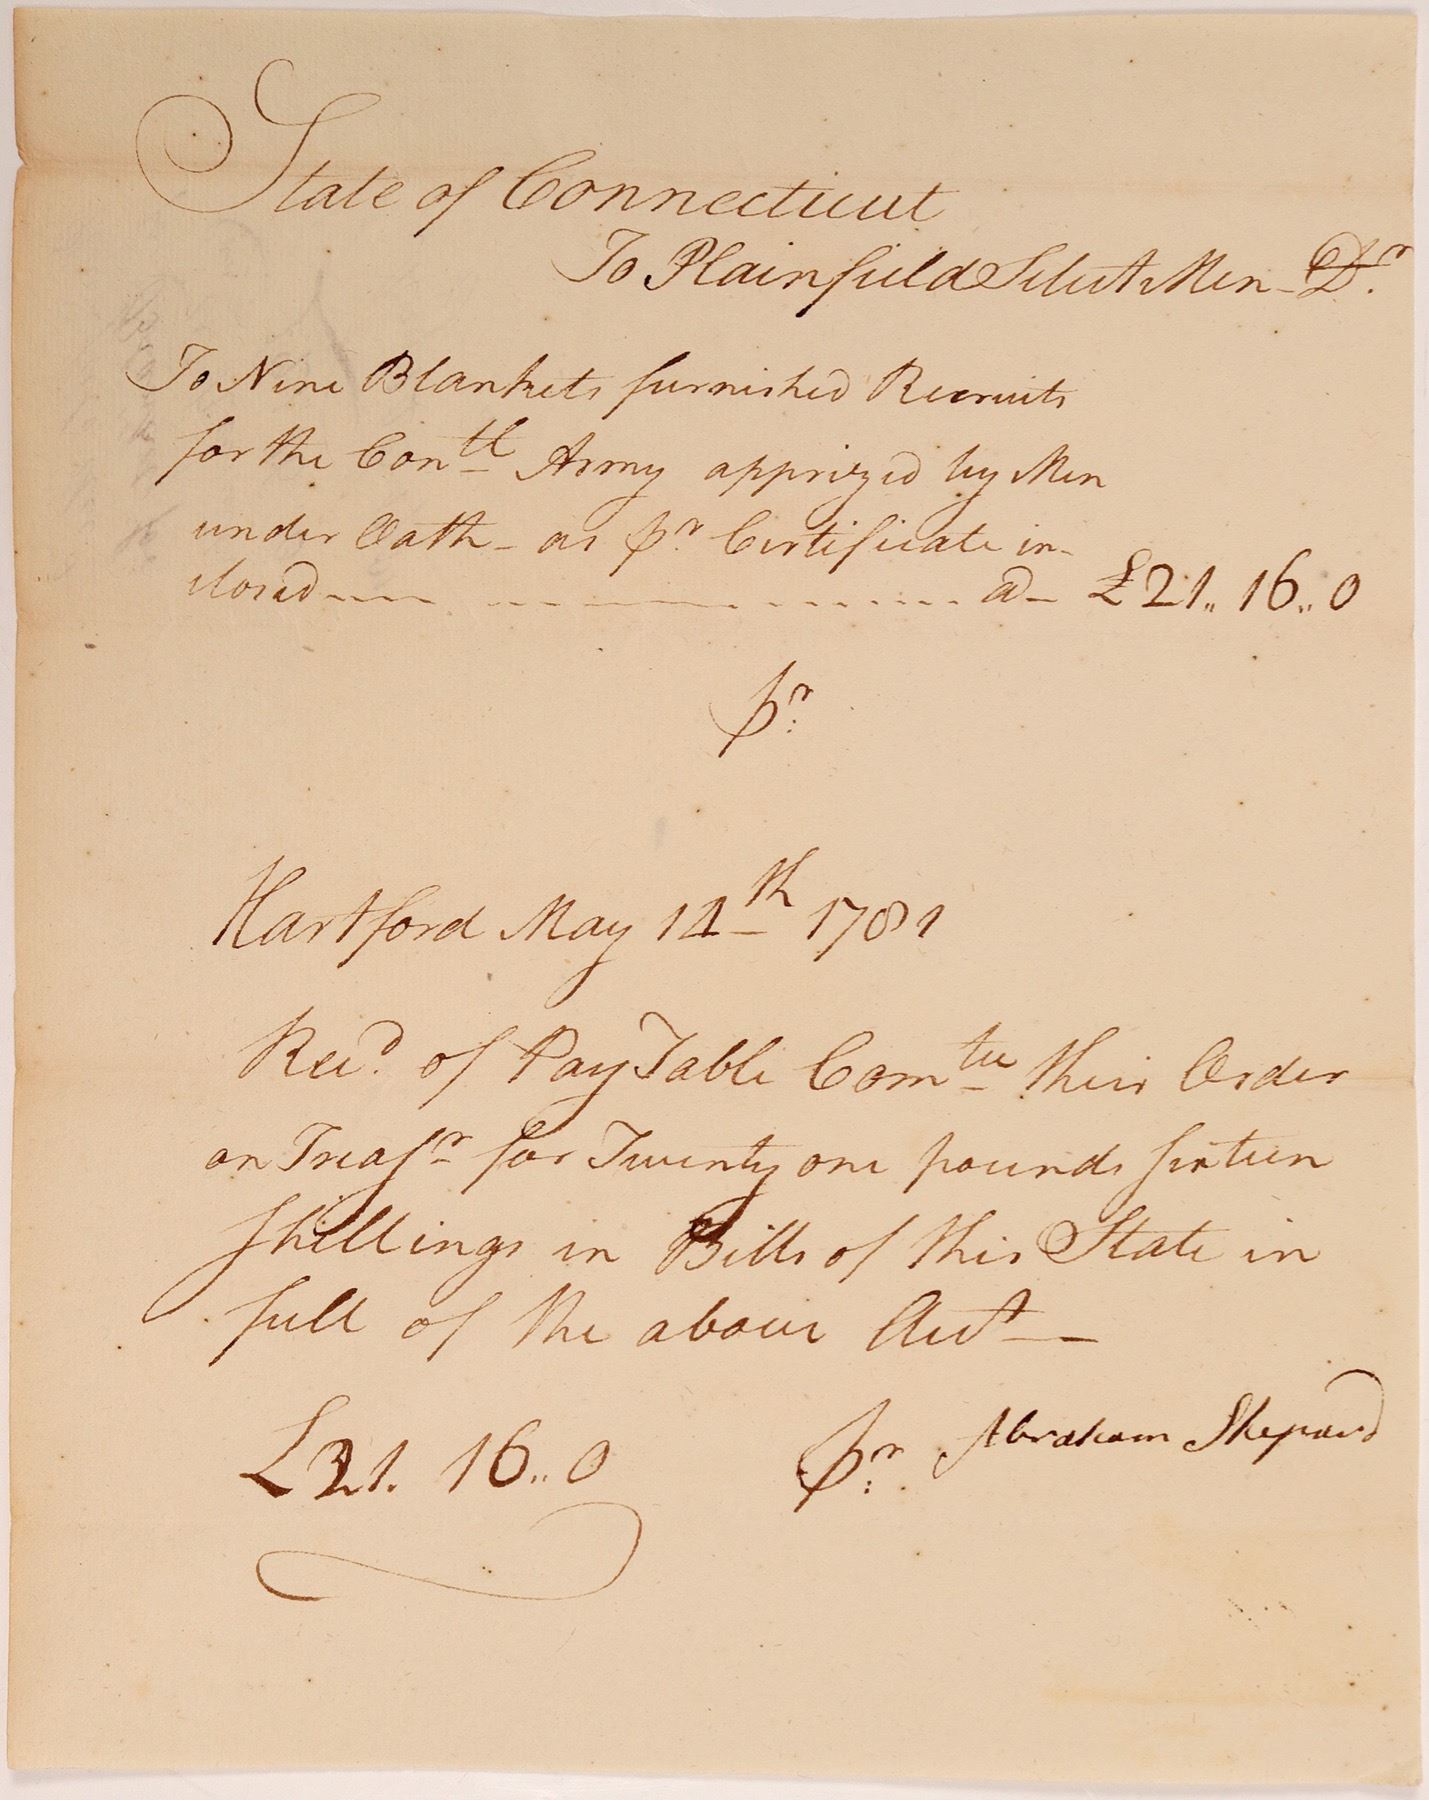 State of Connecticut
To Plainfield Select Men - Dr.
To Nine Blankets furnished Recruits
for the Contl Army apprized by Men
under Oath - as pr Certificate in-
closed ---- @ - £21,, 16,, 0
pr:
Hartford May 14th 1781
Recd. of Pay Table Comtee their Order
on Treasr for Twenty one pounds sixteen
shillings in Bills of this State in
full of the above Acct —
£21. 16,, 0 pr: Abraham Shepard